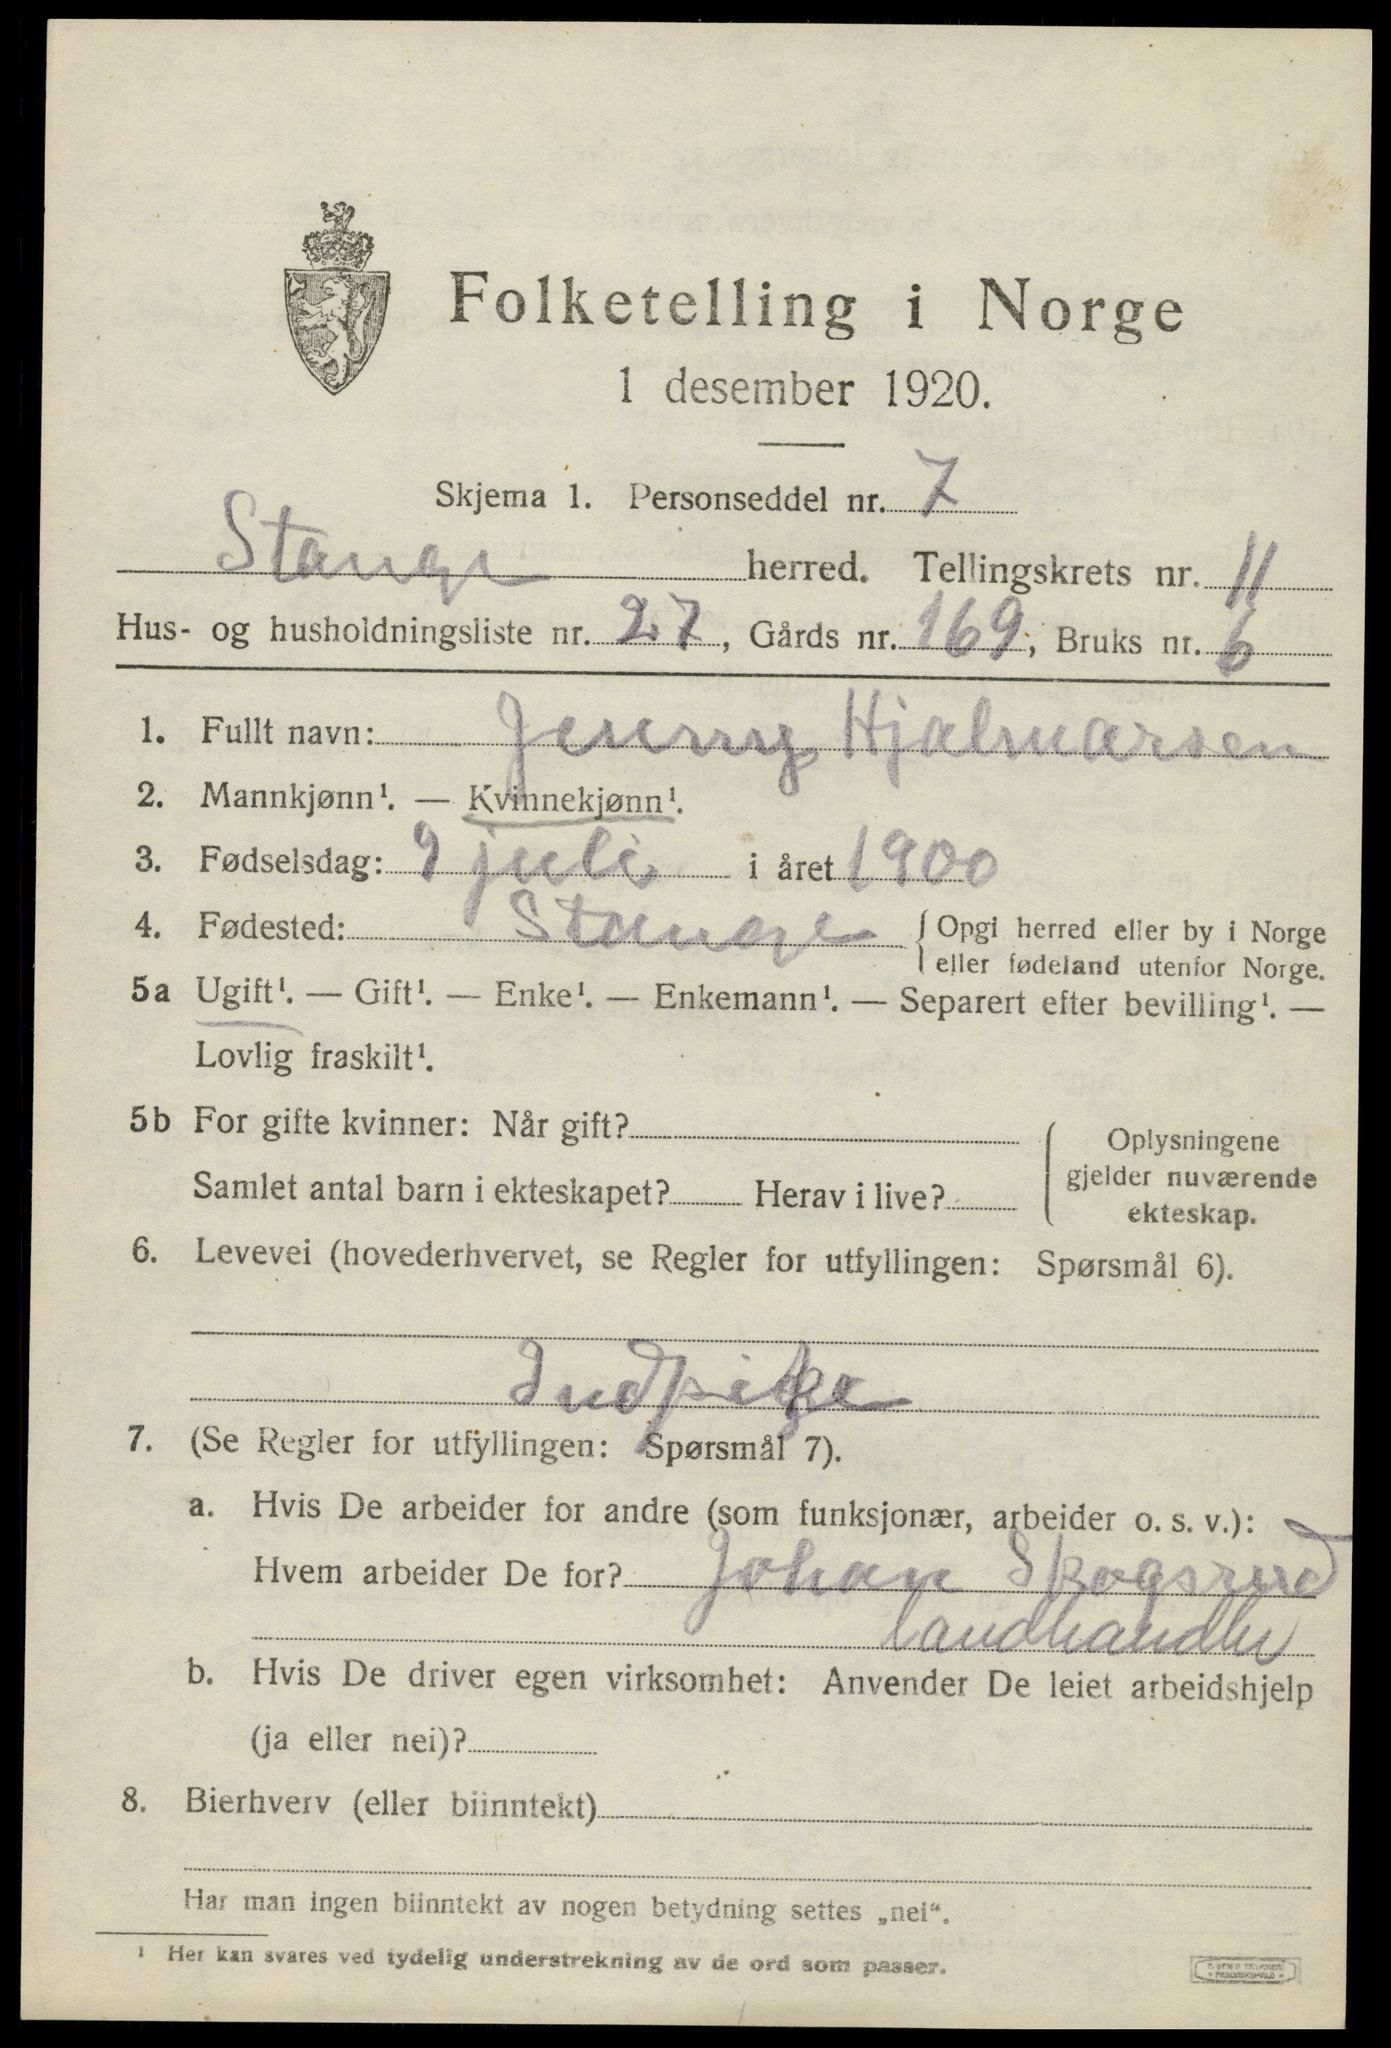 Folketelling i Norge
1 desember 1920.
Skjema 1. Personseddel nr. 7
Stange herred. Tellingskrets nr. 11
Hus- og husholdningsliste nr. 27, Gårds nr. 169, Bruks nr. 6
1. Fullt navn: Jenny Hjalmarsen
2. Mannkjønn¹. — Kvinnekjønn¹.
3. Fødselsdag: 9 juli i året 1900
4. Fødested: Stange { Opgi herred eller by i Norge
eller fødeland utenfor Norge.
5a Ugift¹. — Gift¹. — Enke¹. — Enkemann¹. — Separert efter bevilling¹. —
Lovlig fraskilt¹.
5b For gifte kvinner: Når gift?
Samlet antal barn i ekteskapet? Herav i live?
{ Oplysningene
gjelder nuværende
ekteskap.
6. Levevei (hovederhvervet, se Regler for utfyllingen: Spørsmål 6).
Indpike
7. (Se Regler for utfyllingen: Spørsmål 7).
a. Hvis De arbeider for andre (som funksjonær, arbeider o. s. v.):
Hvem arbeider De for? Johan Skogsrud
landhandler
b. Hvis De driver egen virksomhet: Anvender De leiet arbeidshjelp
(ja eller nei)?
8. Bierhverv (eller biinntekt)
Har man ingen biinntekt av nogen betydning settes „nei“.
¹ Her kan svares ved tydelig understrekning av de ord som passer.